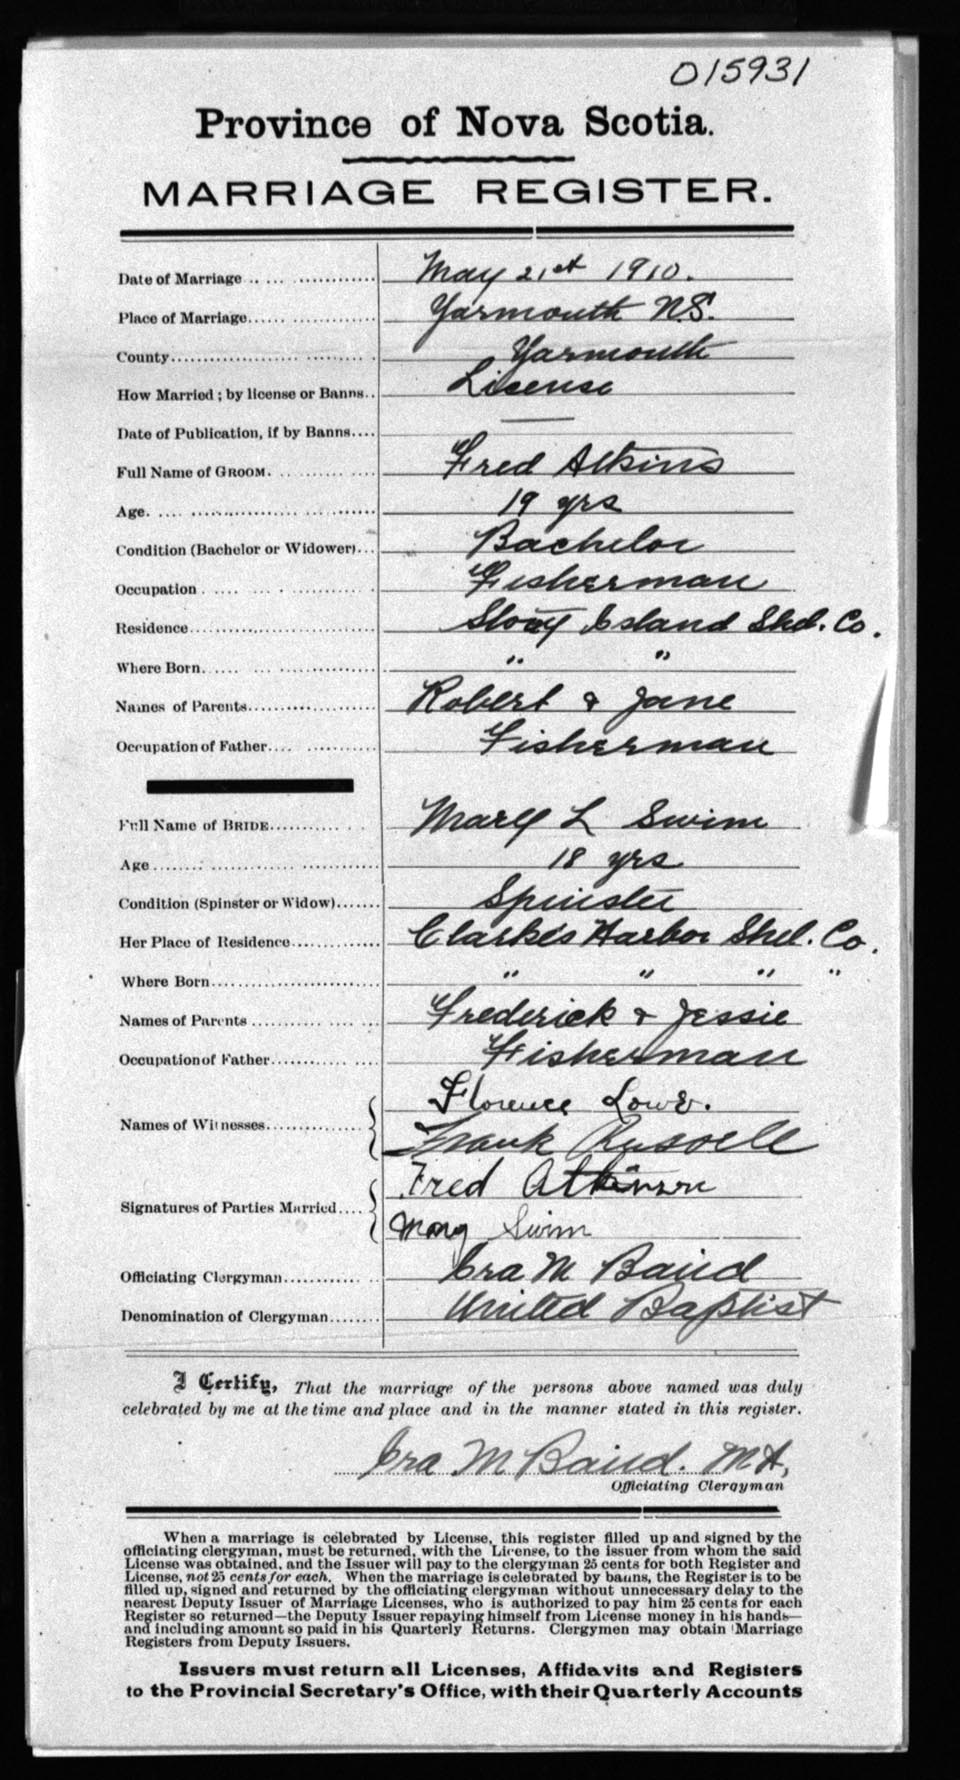 015931
Province of Nova Scotia.
MARRIAGE REGISTER.
Date of Marriage May 21st 1910.
Place of Marriage Yarmouth N.S.
County Yarmouth
How Married; by license or Banns.. License
Date of Publication, if by Banns.... —
Full Name of GROOM. Fred Atkins
Age. 19 yrs
Condition (Bachelor or Widower)... Bachelor
Occupation Fisherman
Residence Stony Island Shel. Co.
Where Born. " "
Names of Parents Robert & Jane
Occupation of Father Fisherman
Full Name of BRIDE Mary L Swim
Age 18 yrs
Condition (Spinster or Widow) Spinster
Her Place of Residence Clarke's Harbor Shel. Co.
Where Born " " " "
Names of Parents Frederick & Jessie
Occupation of Father Fisherman
Florence Lowe.
Names of Witnesses
Frank Russell
Fred Atkinson
Signatures of Parties Married
Mary Swim
Officiating Clergyman Ira M Baird
Denomination of Clergyman United Baptist
I Certify, That the marriage of the persons above named was duly
celebrated by me at the time and place and in the manner stated in this register.
Ira M Baird. M A,
Officiating Clergyman
When a marriage is celebrated by License, this register filled up and signed by the
officiating clergyman, must be returned, with the License, to the issuer from whom the said
License was obtained, and the Issuer will pay to the clergyman 25 cents for both Register and
License, not 25 cents for each. When the marriage is celebrated by banns, the Register is to be
filled up, signed and returned by the officiating clergyman without unnecessary delay to the
nearest Deputy Issuer of Marriage Licenses, who is authorized to pay him 25 cents for each
Register so returned—the Deputy Issuer repaying himself from License money in his hands—
and including amount so paid in his Quarterly Returns. Clergymen may obtain Marriage
Registers from Deputy Issuers.
Issuers must return all Licenses, Affidavits and Registers
to the Provincial Secretary's Office, with their Quarterly Accounts